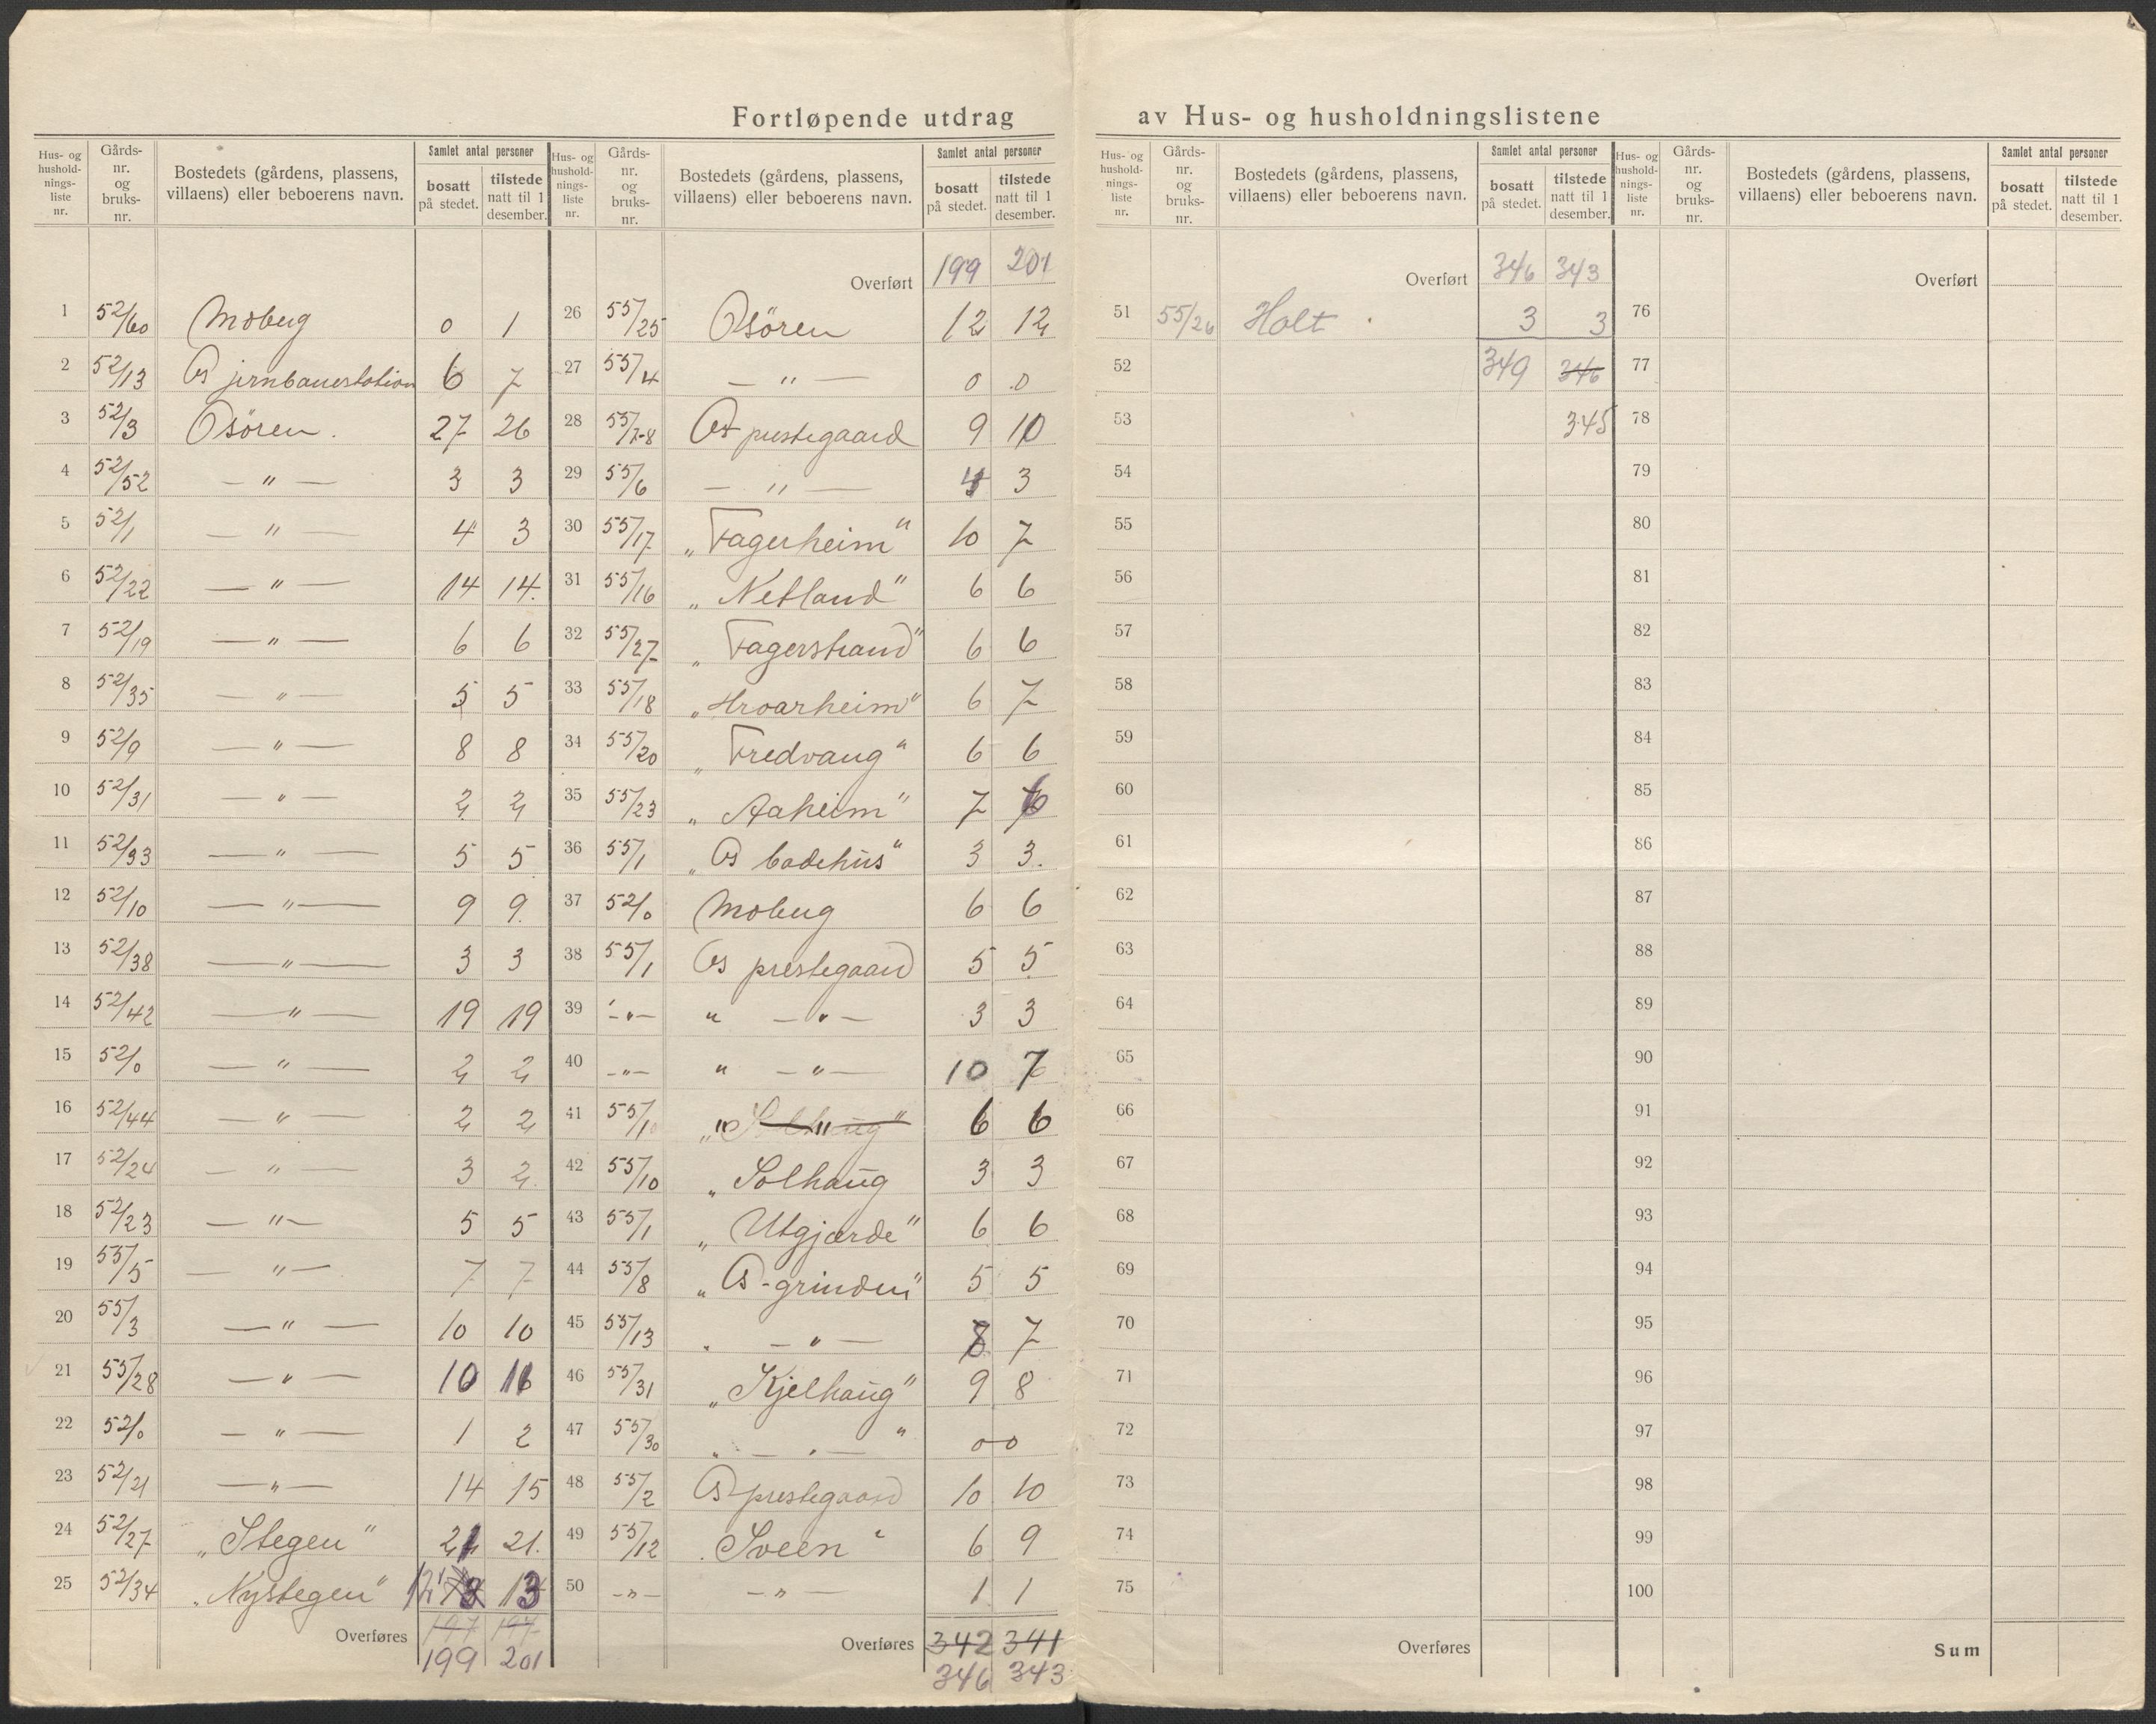 Fortløpende utdrag av Hus- og husholdningslistene
Hus- og hushold-nings-liste nr. | Gårds-nr. og bruks-nr. | Bostedets (gårdens, plassens, villaens) eller beboerens navn. | Samlet antal personer | bosatt på stedet. | tilstede natt til 1 desember.
1 52/60 Moberg 0 1
2 52/13 Os jernbanestation 6 7
3 52/3 Osören. 27 26
4 52/52 — " — 3 3
5 52/1 — " — 4 3
6 52/22 — " — 14 14.
7 52/19 — " — 6 6
8 52/35 — " — 5 5
9 52/9 — " — 8 8
10 52/31 — " — 2 2
11 52/33 — " — 5 5
12 52/10 — " — 9 9.
13 52/38 — " — 3 3
14 52/42 — " — 19 19
15 52/0 — " — 2 2
16 52/44 — " — 2 2
17 52/24 — " — 3 2.
18 52/23 — " — 5 5
19 55/5 — " — 7 7
20 55/3 — " — 10 10
21 55/28 — " — 10
22 52/0 — " — 1 2
23 52/21 — " — 14 15
24 52/27 „Stegen" 21 21.
25 52/34 „Nystegen" 13
Overføres 197 197
199 201
Hus- og hushold-nings-liste nr. | Gårds-nr. og bruks-nr. | Bostedets (gårdens, plassens, villaens) eller beboerens navn. | Samlet antal personer | bosatt på stedet. | tilstede natt til 1 desember.
Overført 199 201
26 55/25 Osören 12 12
27 55/4 — " — 0 0
28 55/7-8 Os prestegaard 9 10
29 55/6 — " — 4 3
30 55/17 „Fagerheim" 10 7
31 55/16 „Netland" 6 6
32 55/27 „Fagerstrand" 6 6
33 55/18 „Hroarheim" 6 7
34 55/20 „Fredvang" 6 6
35 55/23 „Aaheim" 7 6
36 55/1 „Os badehus" 3 3.
37 52/0 Moberg 6 6
38 55/1 Os prestegaard 5 5
39 — " — " — " — 3 3
40 — " — " — " — 10 7
41 55/1 „Solhaug" " 6 6
42 55/10 „Solhaug 3 3
43 55/1 „Utgjærde" 6 6
44 55/8 „Os-grinden" 5 5
45 55/13 — " — 8 7
46 55/31 „Kjelhaug" 9 8
47 55/30 „ — " — " 0 0
48 55/2 Os prestegaard 10 10
49 55/12 „Sveen " 6 9
50 — " — — " — 1 1
Overføres 342 341
346 343
Hus- og hushold-nings-liste nr. | Gårds-nr. og bruks-nr. | Bostedets (gårdens, plassens, villaens) eller beboerens navn. | Samlet antal personer | bosatt på stedet. | tilstede natt til 1 desember.
Overført 346 343
51 55/26 Holt 3 3
52 349 346
53 345
54
55
56
57
58
59
60
61
62
63
64
65
66
67
68
69
70
71
72
73
74
75
Overføres
Hus- og hushold-nings-liste nr. | Gårds-nr. og bruks-nr. | Bostedets (gårdens, plassens, villaens) eller beboerens navn. | Samlet antal personer | bosatt på stedet. | tilstede natt til 1 desember.
Overført
76
77
78
79
80
81
82
83
84
85
86
87
88
89
90
91
92
93
94
95
96
97
98
99
100
Sum